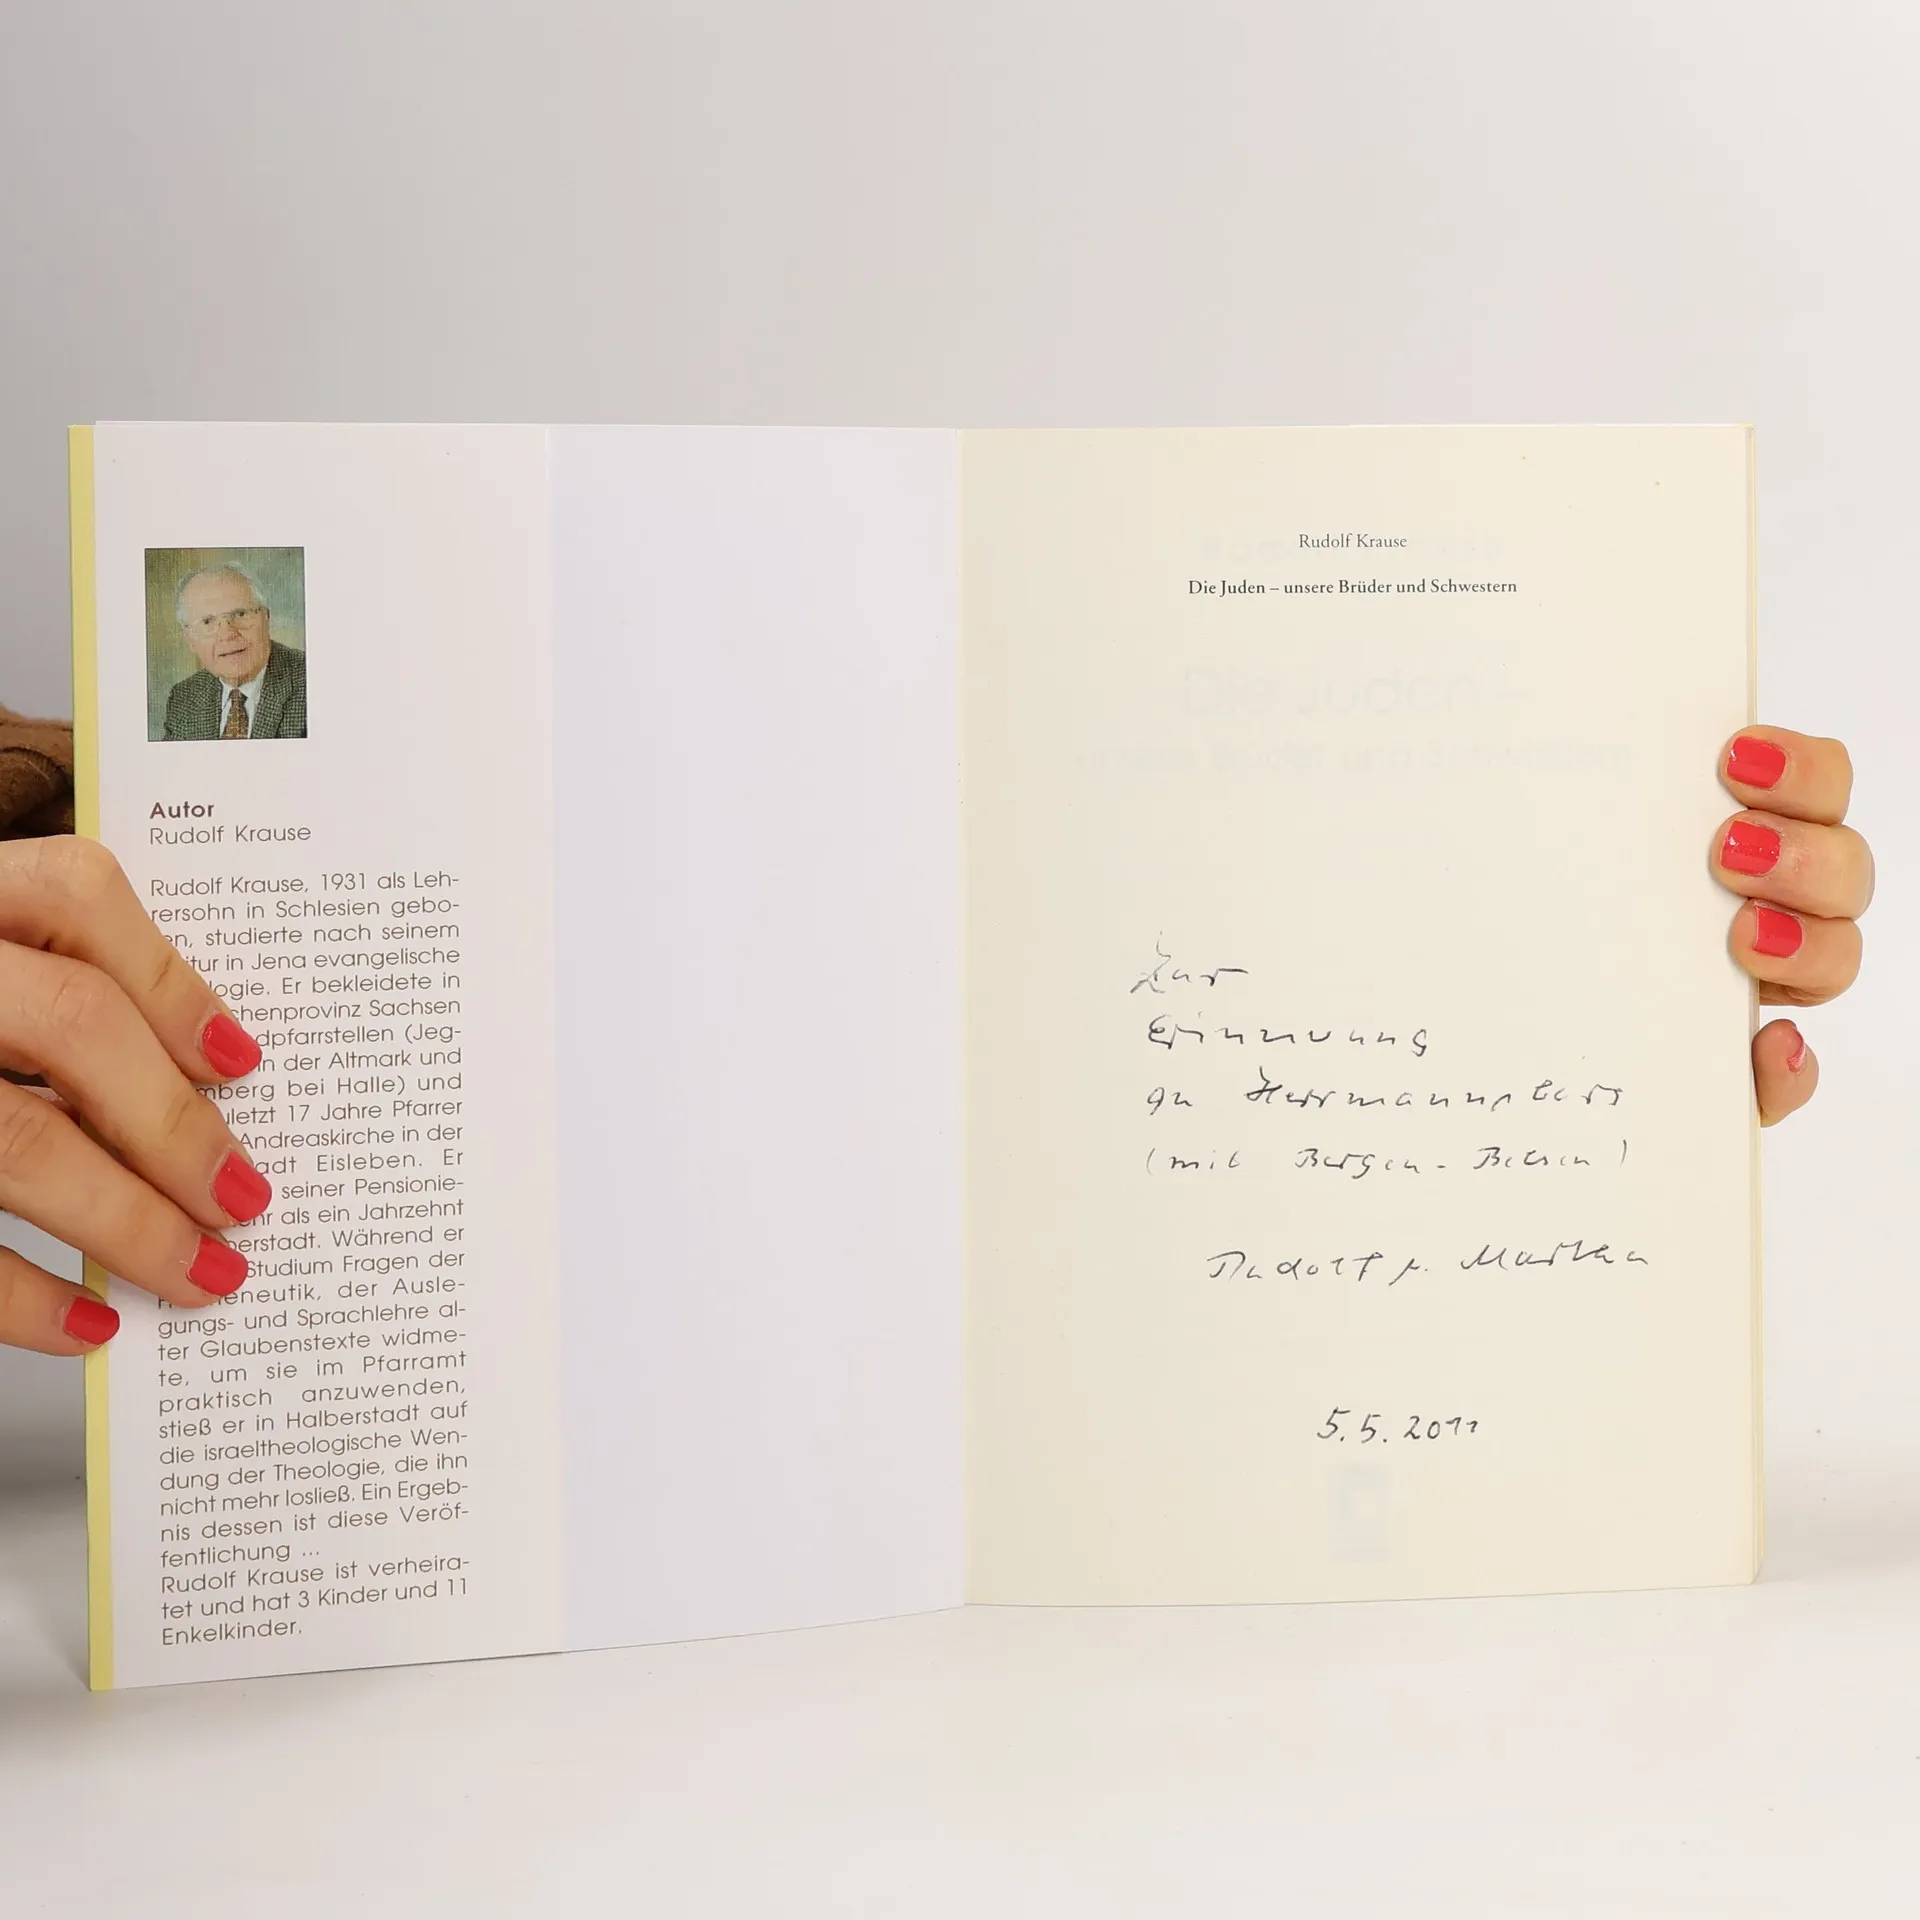 Autor
Rudolf Krause
Rudolf Krause, 1931 als Leh-
rersohn in Schlesien gebo-
en, studierte nach seinem
itur in Jena evangelische
logie. Er bekleidete in
chenprovinz Sachsen
dpfarrstellen (Jeg-
in der Altmark und
mberg bei Halle) und
uletzt 17 Jahre Pfarrer
Andreaskirche in der
adt Eisleben. Er
seiner Pensionie-
hr als ein Jahrzehnt
berstadt. Während er
Studium Fragen der
eneutik, der Ausle-
gungs- und Sprachlehre al-
ter Glaubenstexte widme-
te, um sie im Pfarramt
praktisch anzuwenden,
stieß er in Halberstadt auf
die israeltheologische Wen-
dung der Theologie, die ihn
nicht mehr losließ. Ein Ergeb-
nis dessen ist diese Veröf-
fentlichung ...
Rudolf Krause ist verheira-
tet und hat 3 Kinder und 11
Enkelkinder.
Rudolf Krause
Die Juden – unsere Brüder und Schwestern
Die Juden –
unsere Brüder und Schwestern
Zur
Erinnerung
an Herrmannsburg
(mit Bergen-Belsen)
Rudolf u. Martha
5.5.2011